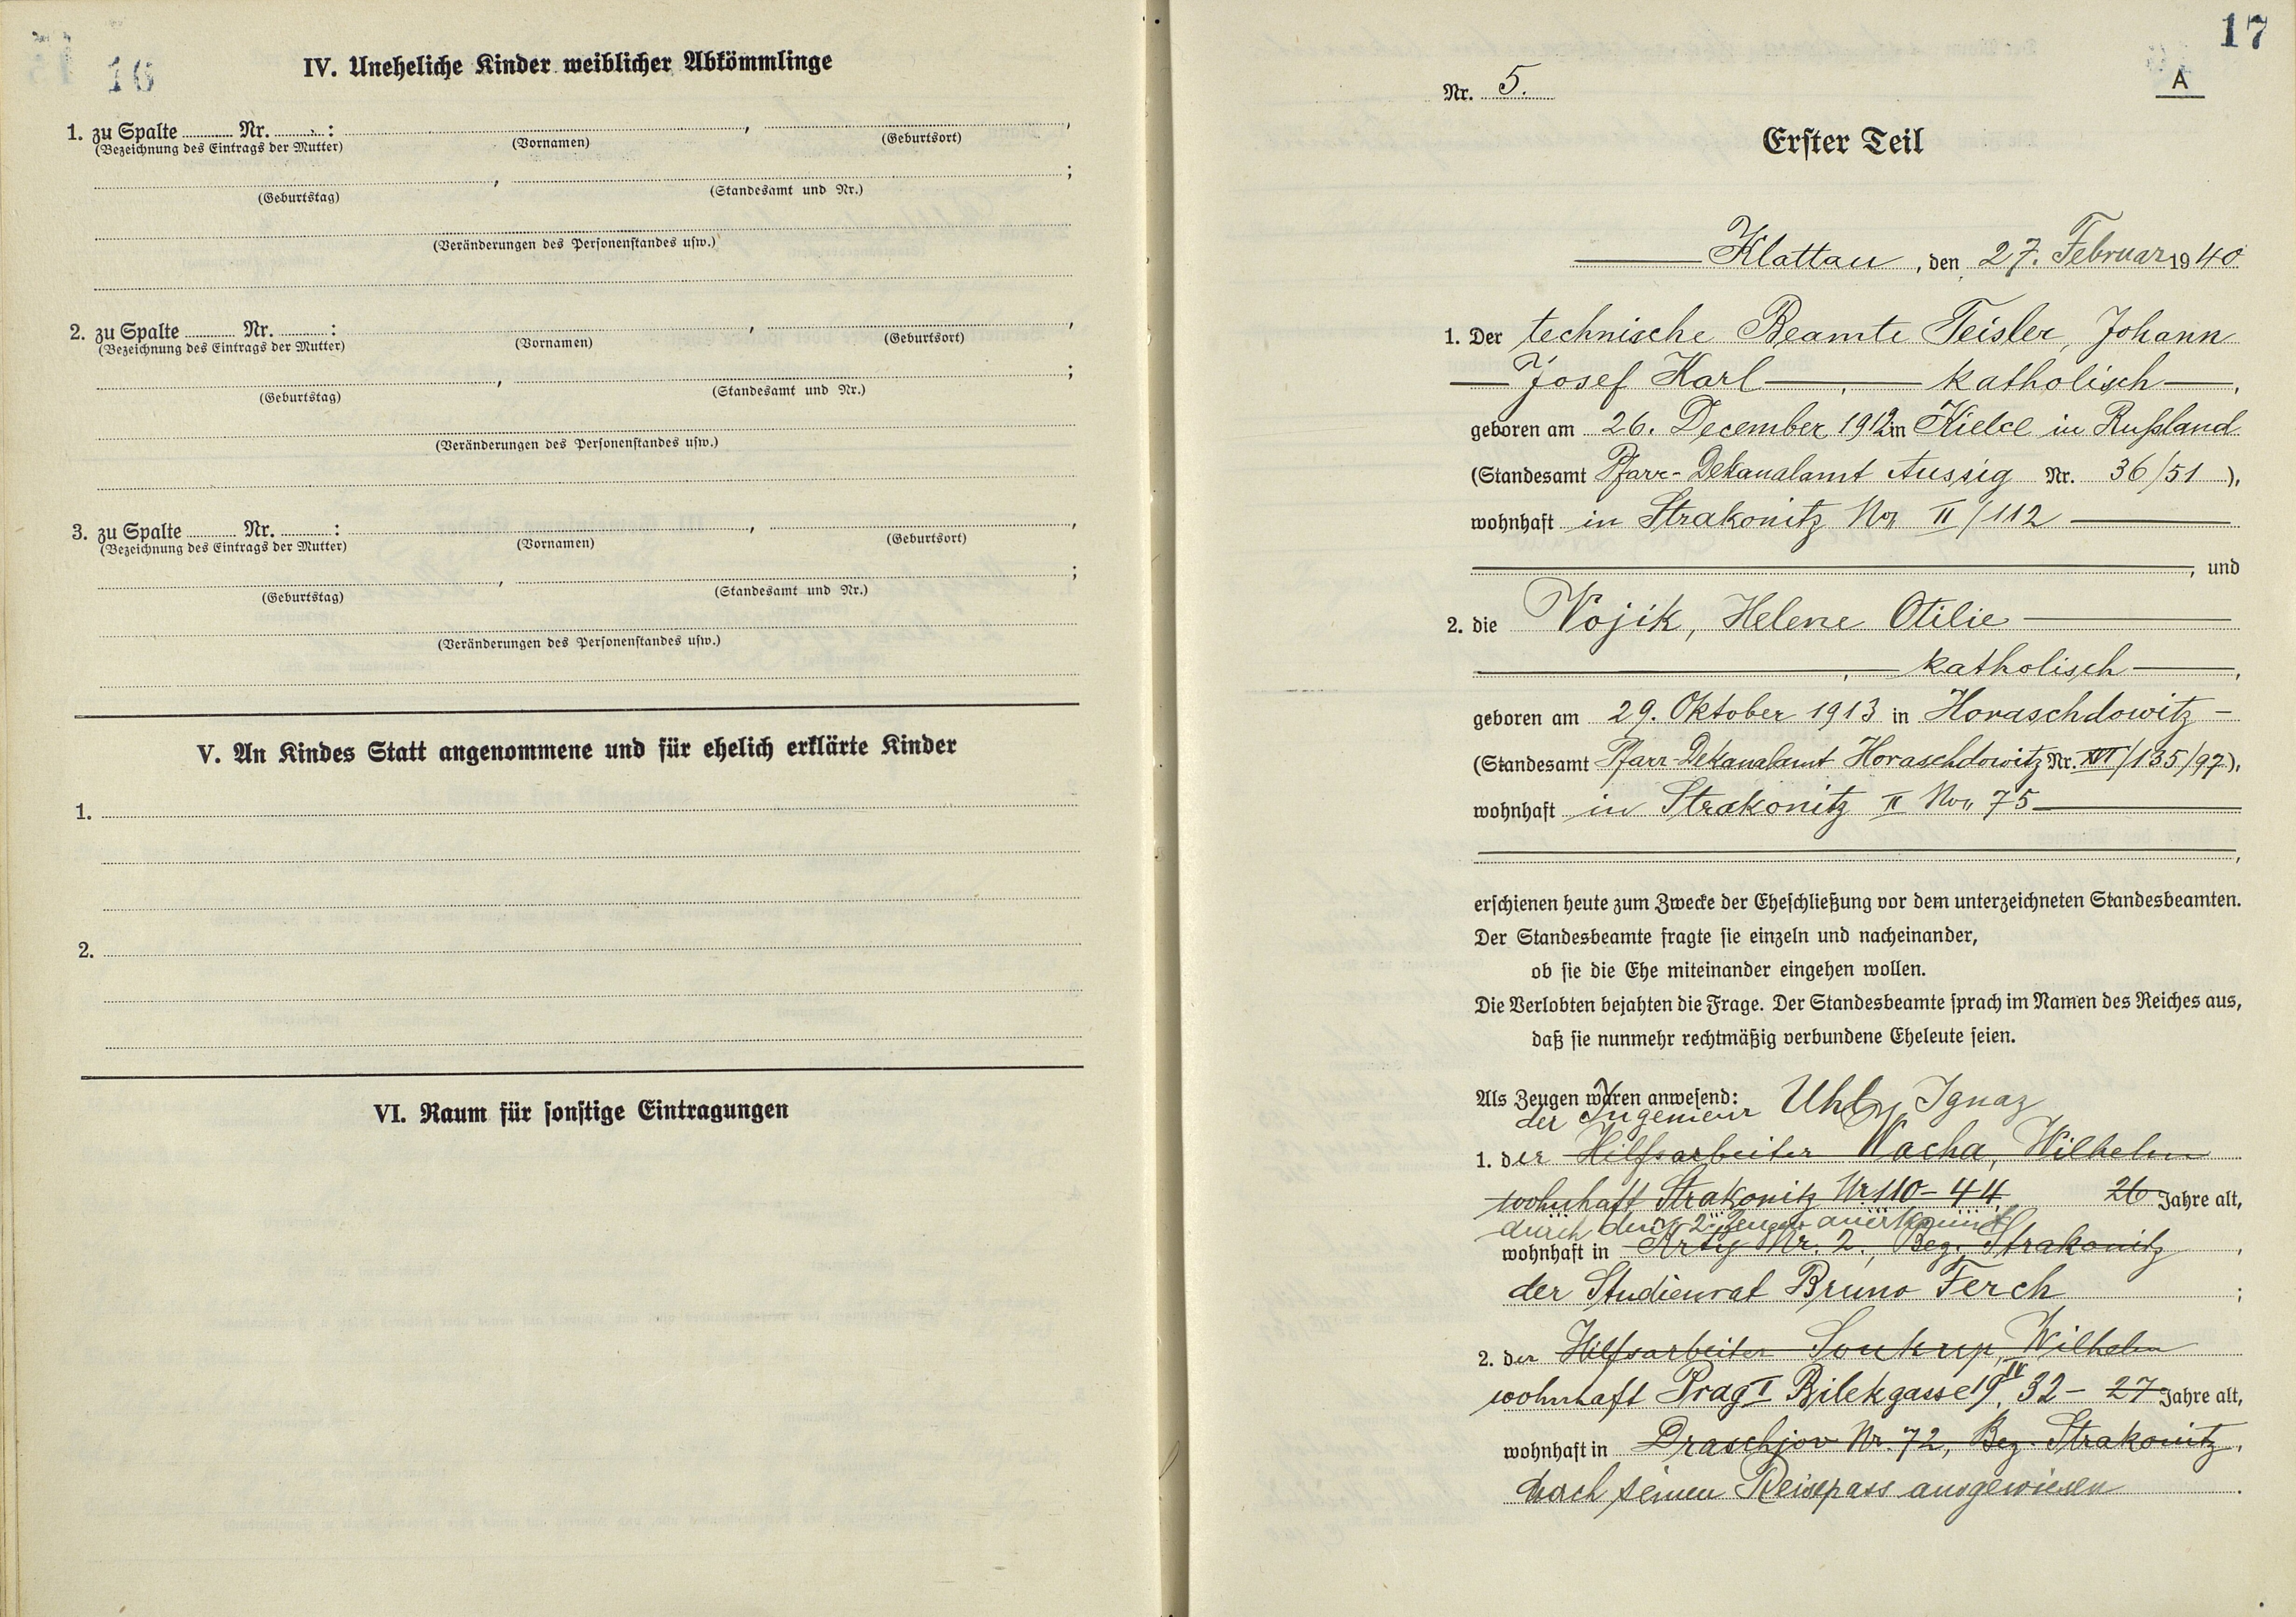 16
IV. Uneheliche Kinder weiblicher Abkömmlinge
1. zu Spalte ........ Nr. ........ : , ,
(Bezeichnung des Eintrags der Mutter) (Vornamen) (Geburtsort)
, ;
(Geburtstag) (Standesamt und Nr.)
(Veränderungen des Personenstandes usw.)
2. zu Spalte ........ Nr. ........ : , ,
(Bezeichnung des Eintrags der Mutter) (Vornamen) (Geburtsort)
, ;
(Geburtstag) (Standesamt und Nr.)
(Veränderungen des Personenstandes usw.)
3. zu Spalte ........ Nr. ........ : , ,
(Bezeichnung des Eintrags der Mutter) (Vornamen) (Geburtsort)
, ;
(Geburtstag) (Standesamt und Nr.)
(Veränderungen des Personenstandes usw.)
V. An Kindes Statt angenommene und für ehelich erklärte Kinder
1.
2.
VI. Raum für sonstige Eintragungen
17
A
Nr. 5.
Erster Teil
Klattau, den 27. Februar 1940
1. Der technische Beamte Teisler, Johann
Josef Karl, katholisch,
geboren am 26. December 1912 in Kielce in Rußland
(Standesamt Pfarr-Dekanalamt Aussig Nr. 36/51),
wohnhaft in Strakonitz No II/112
, und
2. die Vojik, Helene Otilie
, katholisch,
geboren am 29. Oktober 1913 in Horaschdowitz
(Standesamt Pfarr-Dekanalamt Horaschdowitz Nr. XVI/135/97),
wohnhaft in Strakonitz II No 75
,
erschienen heute zum Zwecke der Eheschließung vor dem unterzeichneten Standesbeamten.
Der Standesbeamte fragte sie einzeln und nacheinander,
ob sie die Ehe miteinander eingehen wollen.
Die Verlobten bejahten die Frage. Der Standesbeamte sprach im Namen des Reiches aus,
daß sie nunmehr rechtmäßig verbundene Eheleute seien.
Als Zeugen waren anwesend:
der Ingenieur Uhl, Ignaz
1. der Hilfsarbeiter Vacha, Wilhelm
wohnhaft Strakonitz Nr 110 - 44 26 Jahre alt,
durch 2 Zeugen
wohnhaft in Nr. 2, Bez. Strakonitz,
der Studienrat Bruno Ferch ;
2. der Hilfsarbeiter Soukup, Wilhelm
wohnhaft Prag I Bilekgasse 19 IV, 32 - 27 Jahre alt,
wohnhaft in Draschjov Nr. 72, Bez. Strakonitz,
nach seinen Reisepass ausgewiesen.